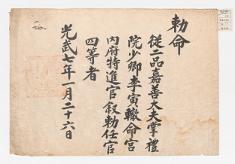 勅命
從二品嘉善大夫掌禮
院少卿李寅轍命宮
內府特進官敘勅任官
四等者
光武七年一月二十六日